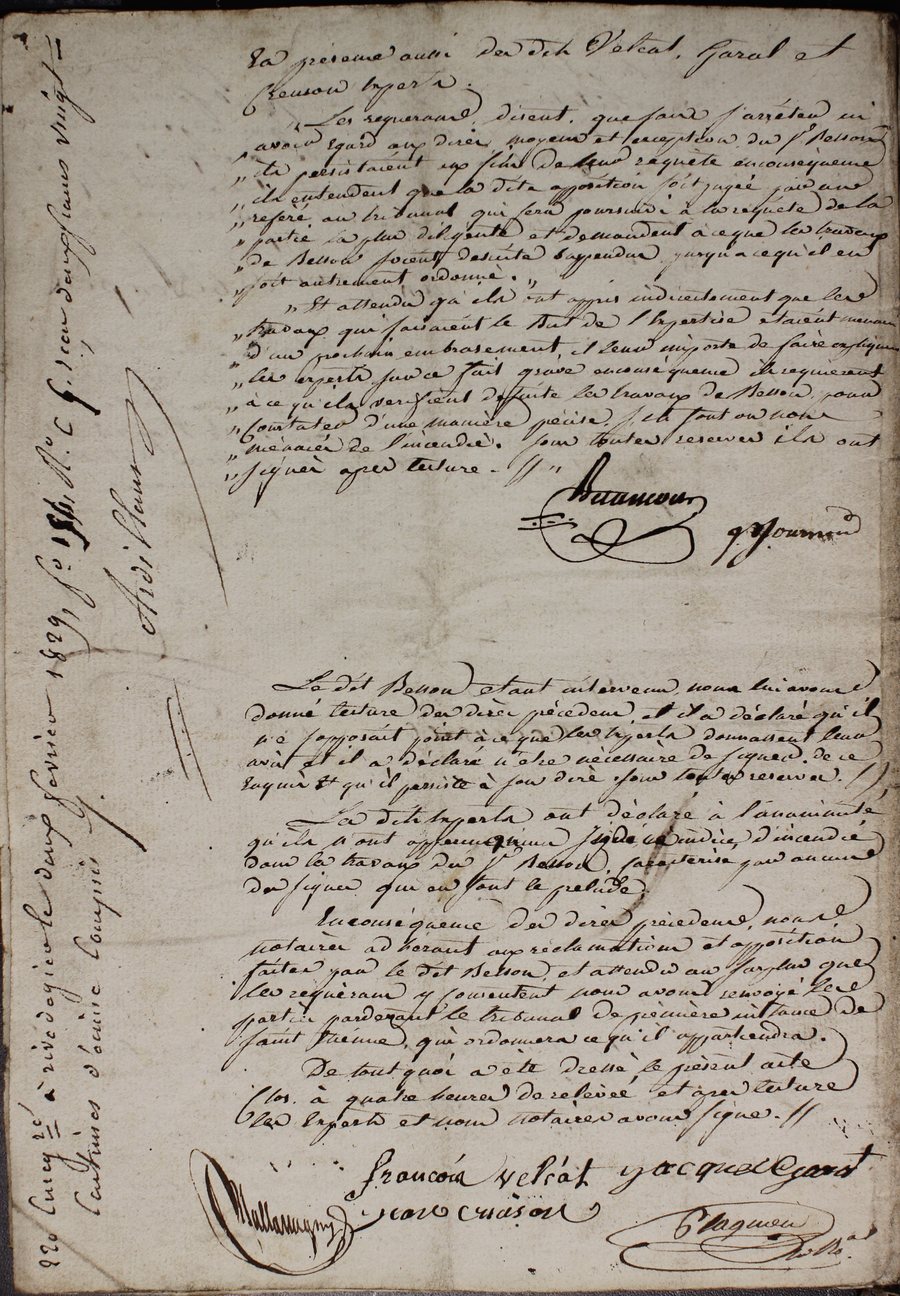 En présence aussi des dits Velcat, Garat et
Creuson Experts.
" Les requerans disent, que sans s'arrêter ni
" avoir Egard aux dires, moyens et exception du Sr Besson
" ils persistaient aux fins de leur requête en conséquence
" ils entendent que la dite opposition soit jugée par une
" référé au tribunal qui sera poursuivi à la requête de la
" partie la plus diligente et demandent à ce que les travaux
" de Besson soient desuite suspendus jusqu'a ce qu'il en
" soit autrement ordonné. "
" Et attendu qu'ils ont appris indirectement que les
" travaux qui faisaient le But de l'Expertise etaient menacés
" d'un prochain embrasement, il leur importe de faire expliquer
" les experts sur ce fait grave en conséquence ils requièrent
" à ce qu'ils verifient desuite les travaux de Besson, pour
" Constater d'une manière précise, s'ils sont ou non
" ménacés de l'incendie. Sous toutes reserves ils ont
" signés apres lecture. //"
Le dit Besson etant intervenu, nous lui avons
donné lecture des dires précédens, et il a déclaré qu'il
ne s'opposait point à ce que les Experts donnassent leur
avis et il a déclaré n'etre nécessaire de signer. de ce
Enquis Et qu'il persiste à son dire sous toutes reserves. //
Les dits Experts ont déclaré à l'unanimité
qu'ils n'ont apperçu aucun indice d'incendie
dans les travaux du Sr Besson, caracterisé par aucuns
des signes qui en sont le prélude.
En conséquence des dires précédens, nous
notaires adhérant aux réclamations et opposition
faites par le dit Besson et attendu au surplus que
les requérans y consentent nous avons renvoyé les
parties pardevant le tribunal de première instance de
saint Etienne, qui ordonnera ce qu'il appartiendra.
De tout quoi a été dressé le présent acte
Clos à quatre heures de relevée et apres lecture
les Experts et nous notaires avons signé. //
françois velcat jacques garat
jean cruison
Enregré à rivedegier le deux fevrier 1829, fo 184, Ro C 5. reçu deux francs vingt
Centimes d'ecime Compris